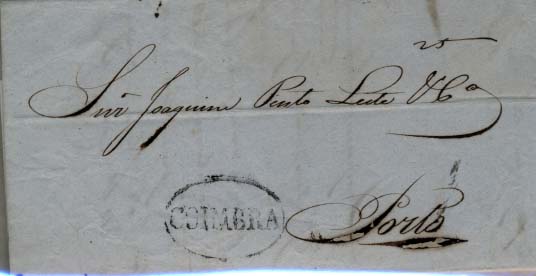 25
Snr Joaquim Pinto Leite & Ca
COIMBRA
Porto